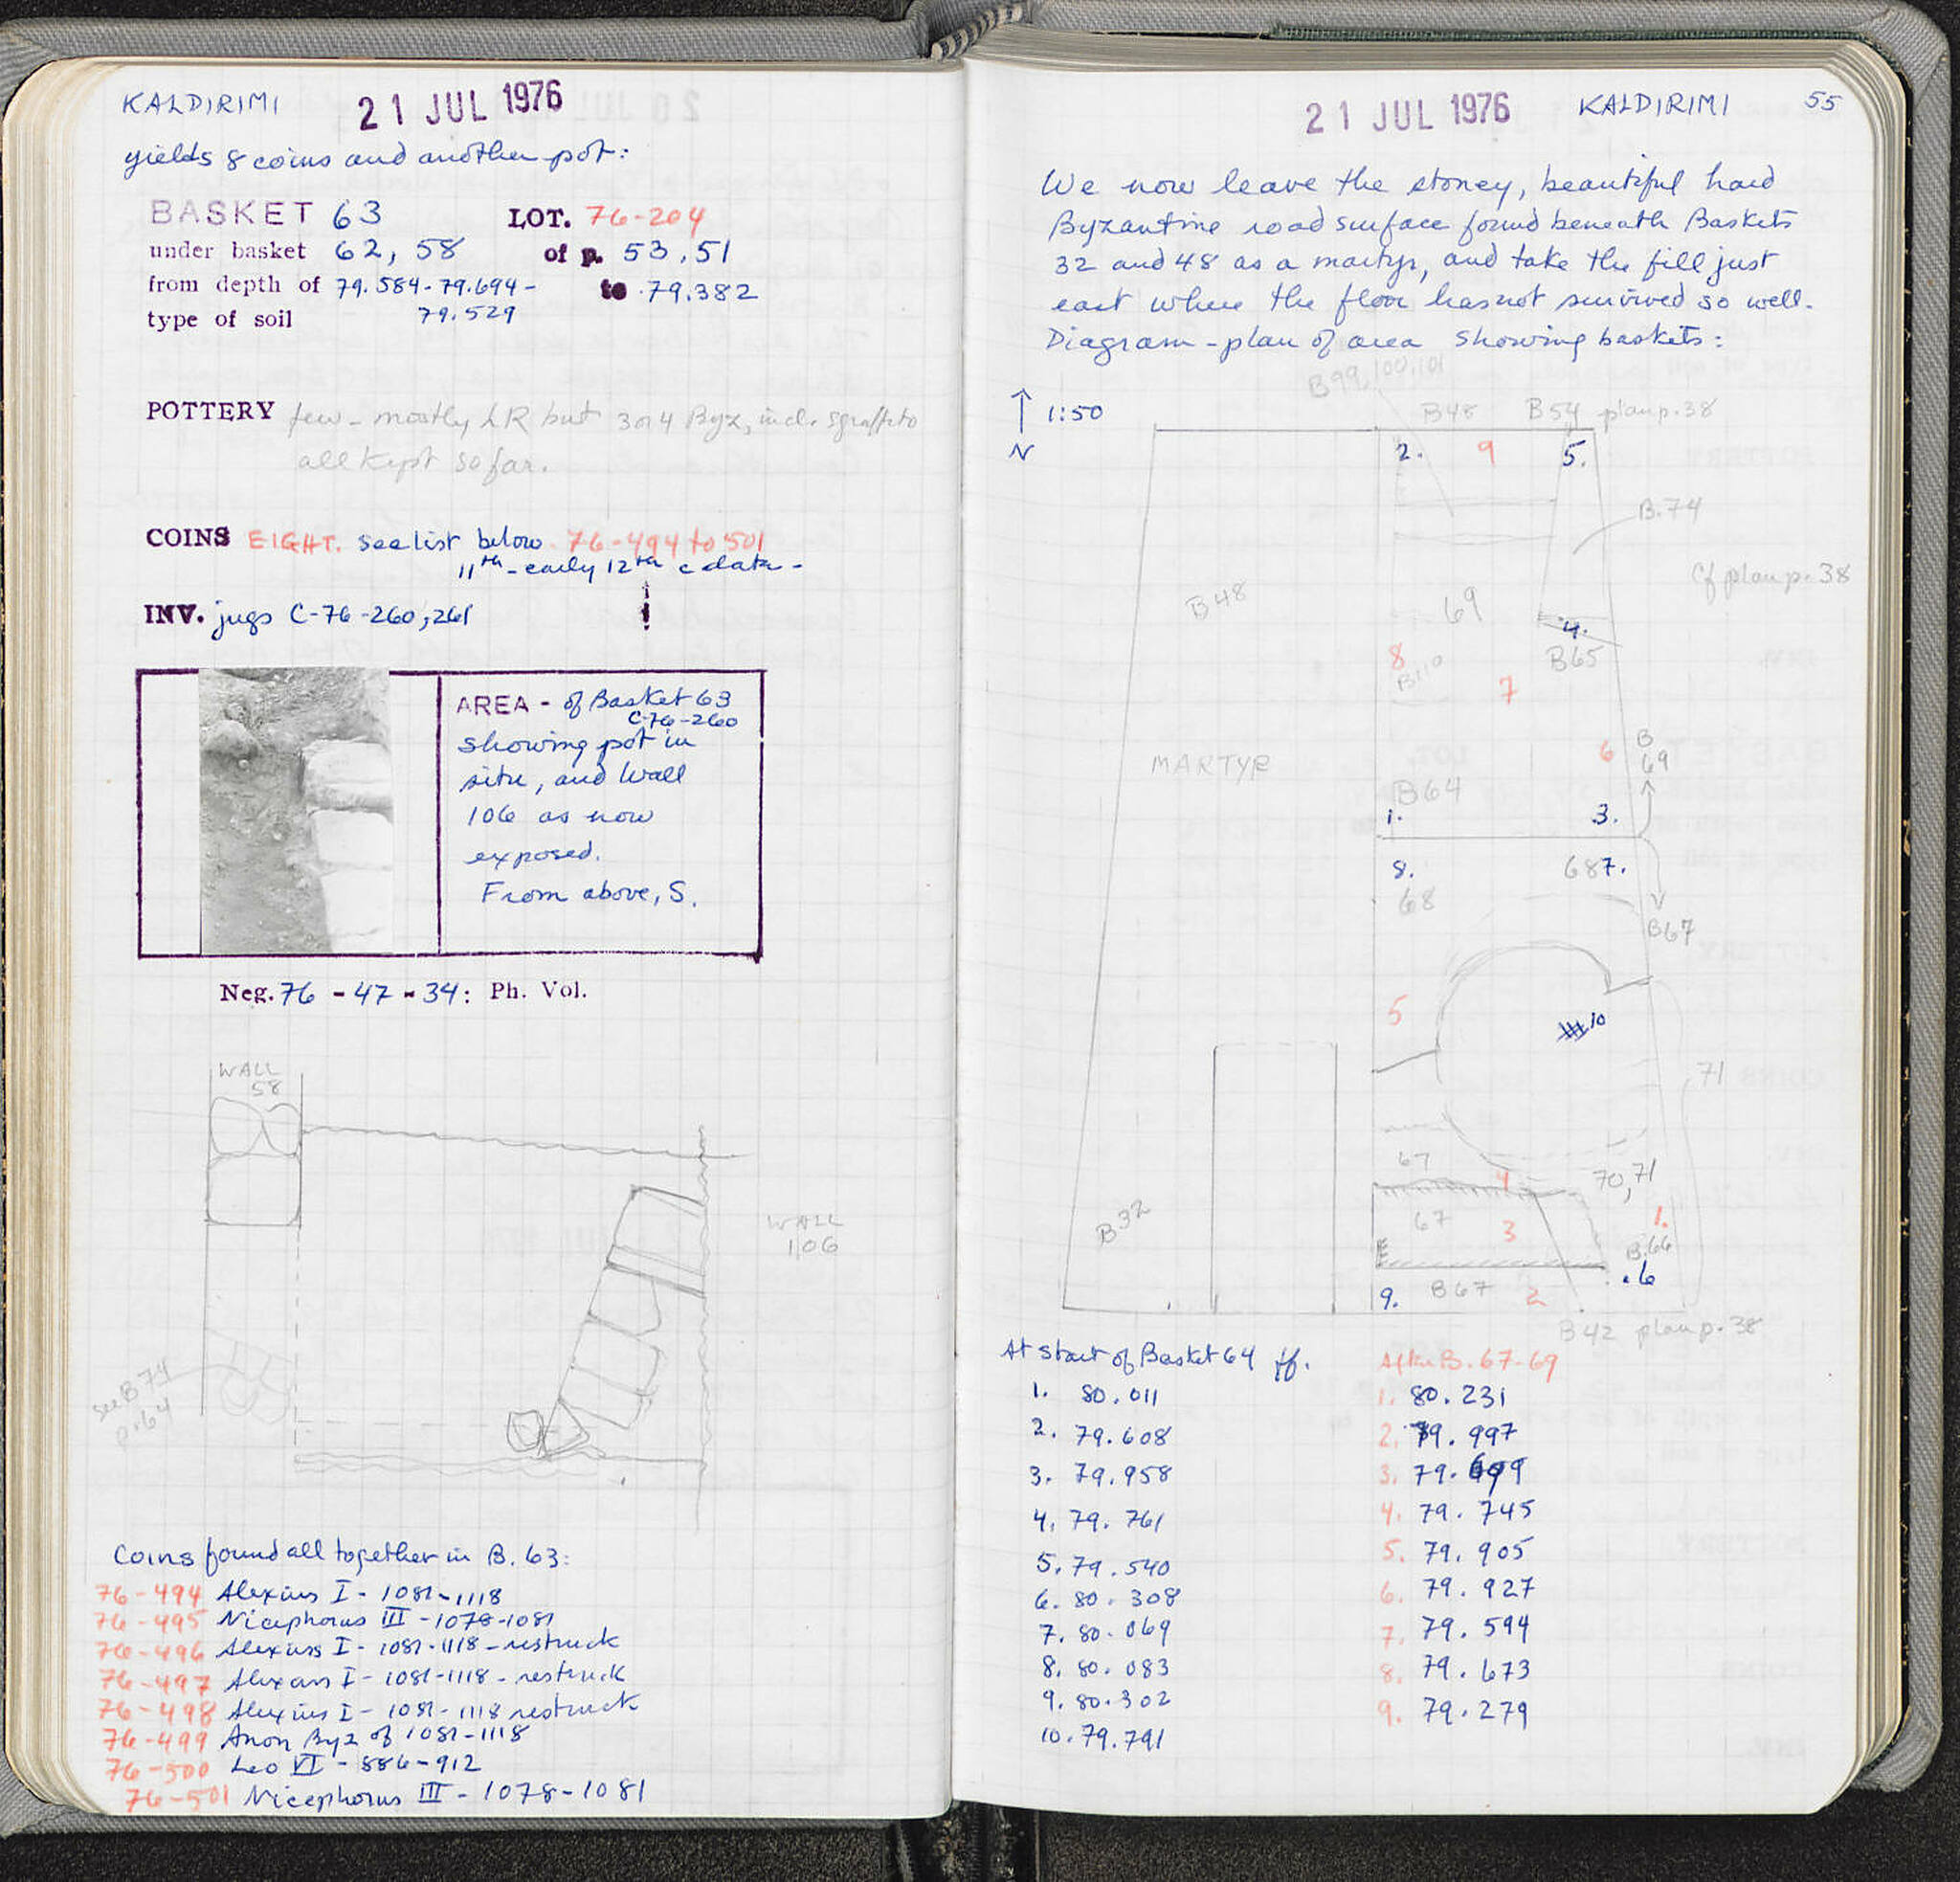 KALDIRIMI
21 JUL 1976
yields 8 coins and another pot:
BASKET 63 LOT. 76-204
under basket 62, 58 of p. 53, 51
from depth of 79.584-79.694- to 79.382
type of soil 79.529
POTTERY few - mostly LR but 3 or 4 Byz, incl. sgraffito
all kept so far.
COINS EIGHT. see list below 76-494 to 501
11th - early 12th c date -
INV. jugs C-76-260, 261 !
AREA - of Basket 63
C-76-260
showing pot in
situ, and Wall
106 as now
exposed.
From above, S.
Neg. 76 - 47 - 34: Ph. Vol.
WALL
58
WALL
106
see B 74
p. 64
Coins found all together in B. 63:
76-494 Alexius I - 1081-1118
76-495 Nicephorus III - 1078-1081
76-496 Alexius I - 1081-1118 - restruck
76-497 Alexius I - 1081-1118 - restruck
76-498 Alexius I - 1081-1118 restruck
76-499 Anon Byz of 1081-1118
76-500 Leo VI - 886-912
76-501 Nicephorus III - 1078-1081
21 JUL 1976
KALDIRIMI 55
We now leave the stoney, beautiful hard
Byzantine road surface found beneath Baskets
32 and 48 as a martyr, and take the fill just
east where the floor has not survived so well.
Diagram - plan of area showing baskets:
B99, 100, 101
1:50
N
B48 B54 plan p. 38
2. 9 5.
B. 74
Cf plan p. 38
B48
69
4.
B65
8
B110
7
MARTYR
6
B
69
B64
1. 3.
8. 68 7.
68
B67
5
10
71
67
4
70, 71
67
3
1.
B. 66
.6
B 32
9. B67 2
B42 plan p. 38
At start of Basket 64 ff.
1. 80.011
2. 79.608
3. 79.958
4. 79.761
5. 79.540
6. 80.308
7. 80.069
8. 80.083
9. 80.302
10. 79.791
After B. 67-69
1. 80.231
2. 79.997
3. 79.699
4. 79.745
5. 79.905
6. 79.927
7. 79.594
8. 79.673
9. 79.279